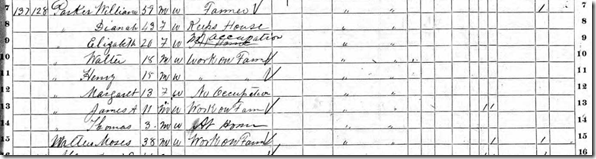 7 137 128 Parker William 59 M W Farmer 1 7
8 " Dianah 63 F W Keeps House " "
9 " Elizabeth 20 F W No Occupation " "
10 " Walter 18 M W Work on Farm " "
11 " Henry 15 M W " " " "
12 " Margaret 13 F W No Occupation " "
13 " James A 11 M W Work on Farm " " 11
14 " Thomas 3 M W At Home " " 14
15 Moses 38 M W Work on Farm " " 1 15
16